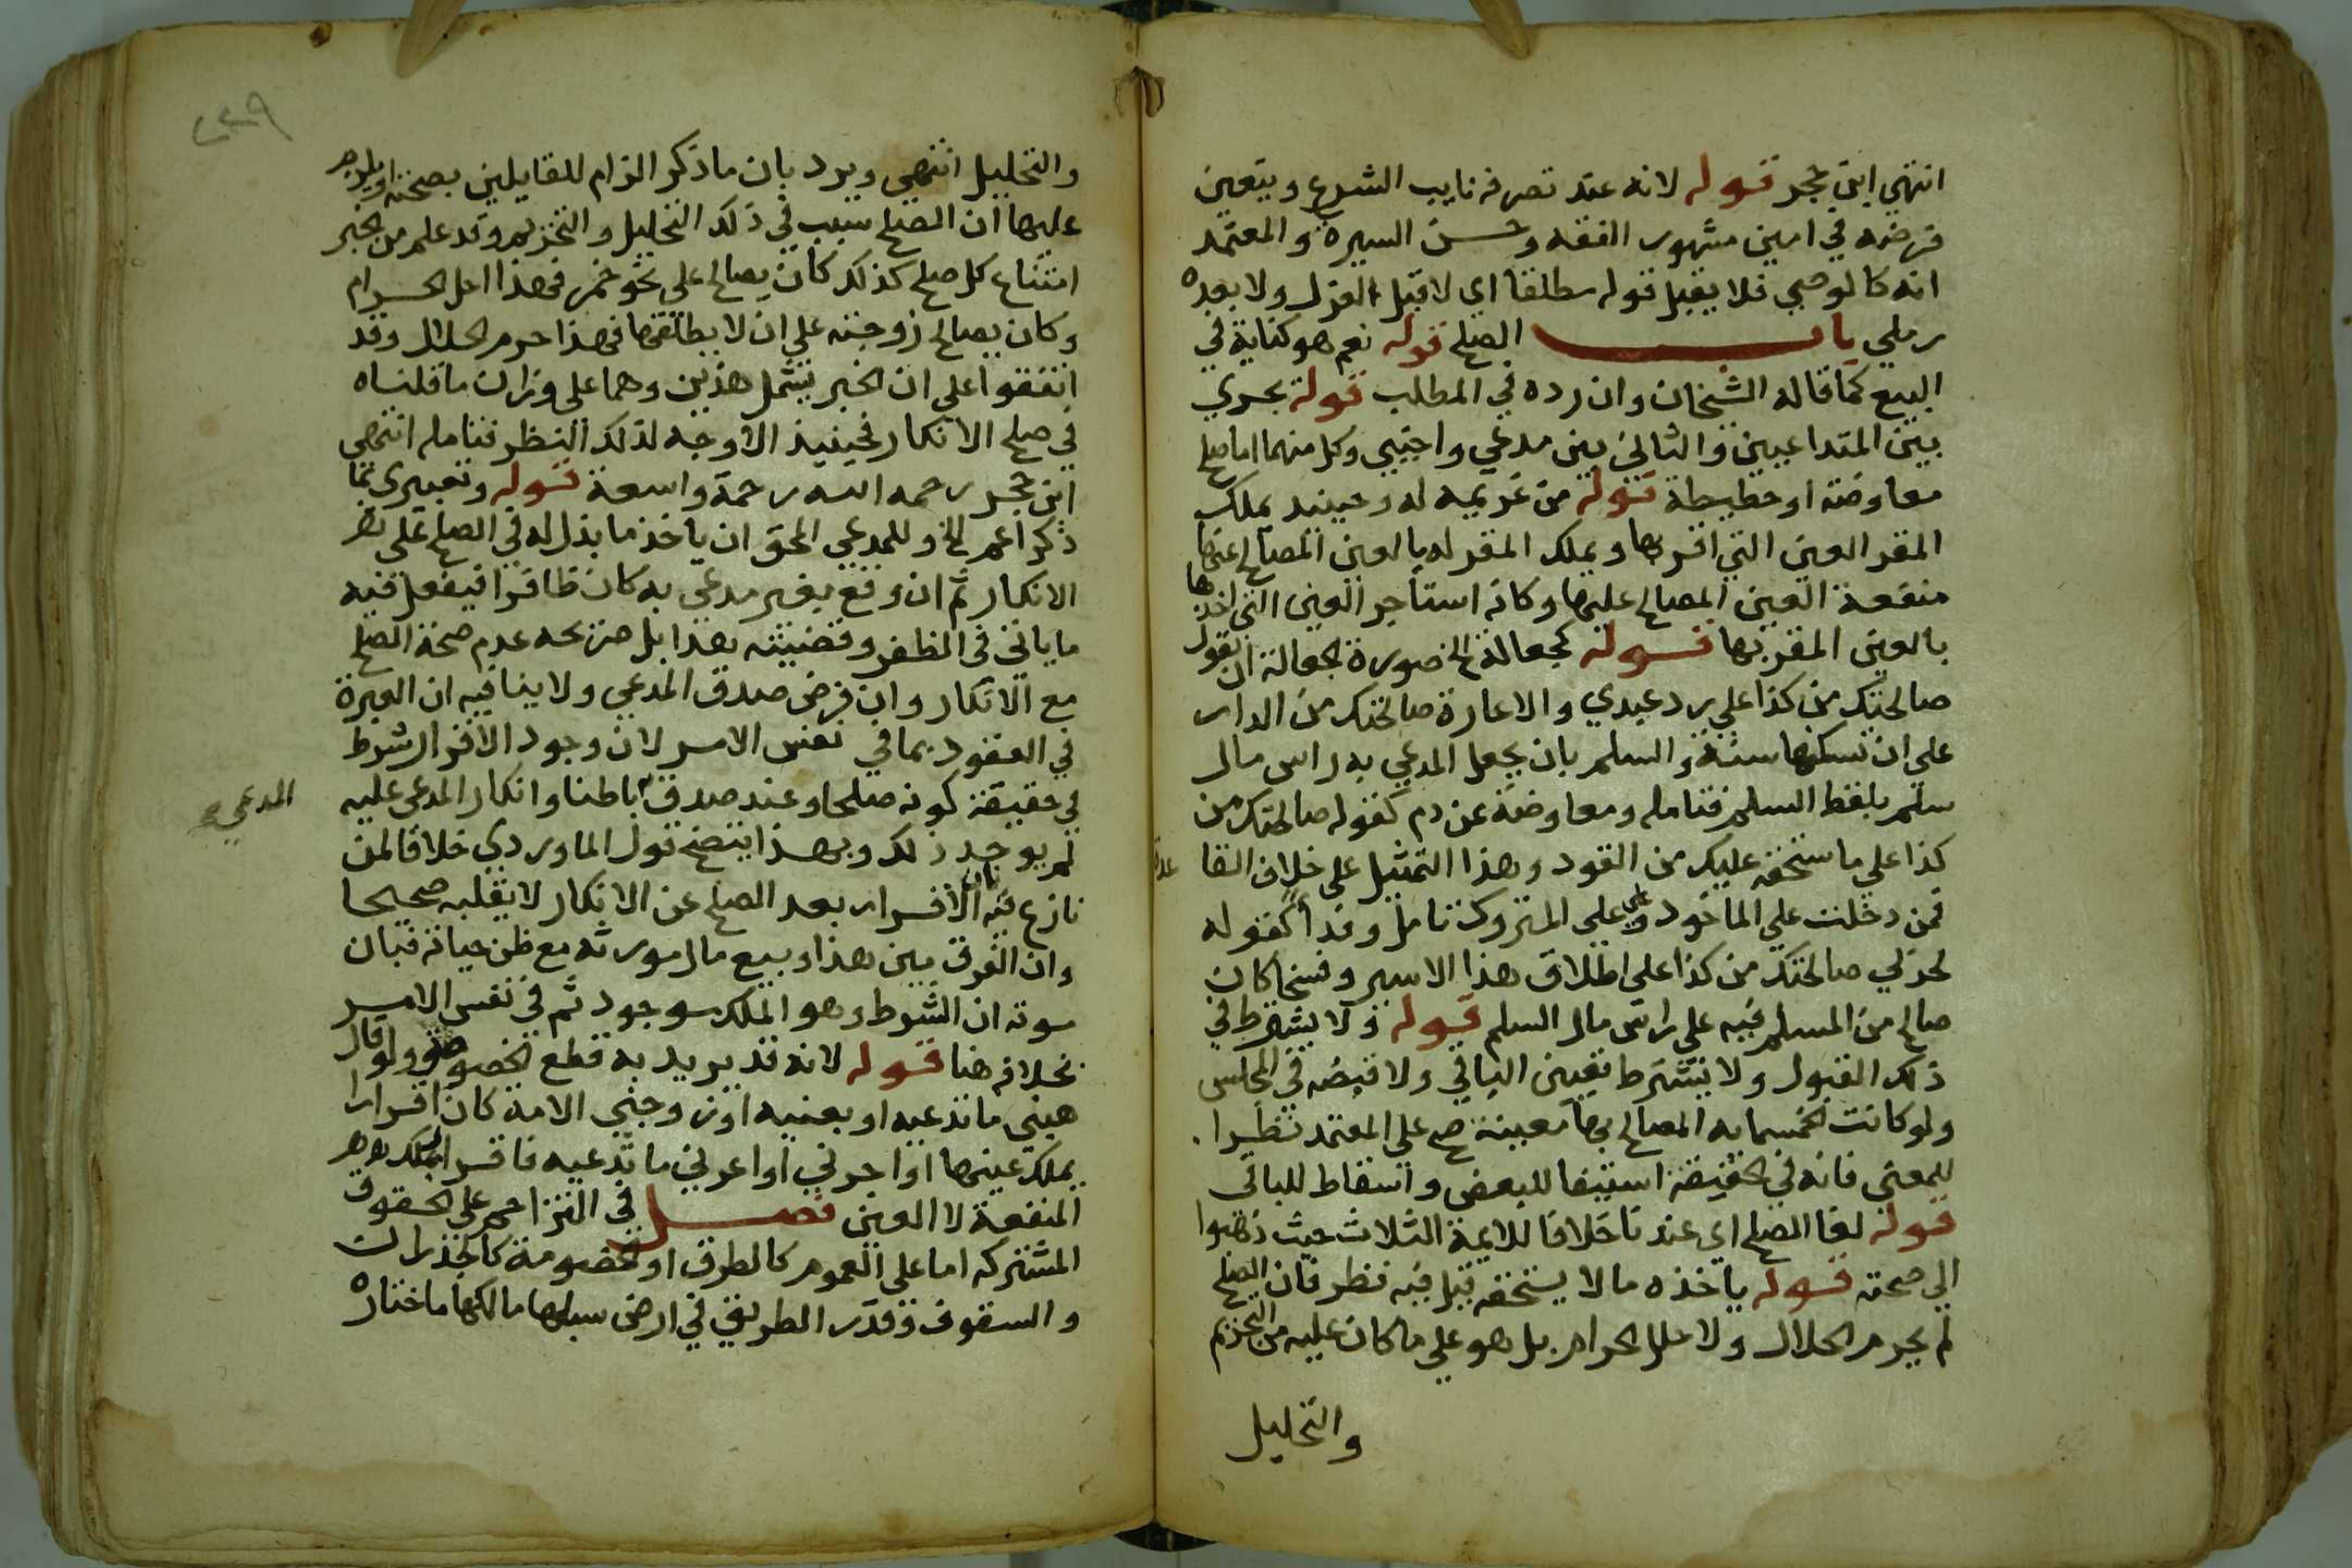 انتهي ابن حجر قوله لانه عند تصرفه نايب الشرع ويتعين
فرضه في امين مشهور الفقه وحسن السيرة والمعتمد
انه كالوصي فلا يقبل قوله مطلقا اي لا قبل العزل ولا بعده
رملي باب الصلح قوله نعم هو كناية في
البيع كما قاله الشيخان وان رده في المطلب قوله يجري
بين المتداعيين والثاني بين مدعي واجنبي وكل منهما اما صلح
معاوضة او حطيطة قوله من غريمه له وحينيد يملك
المقر العين التي اقر بها ويملك المقر له بالعين المصالح عنها
منفعة العين المصالح عليها وكانه استاجر العين التي اخذها
بالعين المقر بها قوله كجعالة الخ صورة الجعالة ان تقول
صالحتك من كذا علي رد عبدي والاعارة صالحتك من الدار
علي ان تسكنها سنة والسلم بان يجعل المدعي به راس مال
سلم بلفظ السلم فتامله ومعاوضة عن دم كقوله صالحتك من
كذا علي ما استحقه عليك من القود وهذا التمثيل علي خلاف القا عدة
فمن دخلت علي الماخود وعلي علي المتروك تامل وفدا كقوله
لحربي صالحتك من كذا علي اطلاق هذا الاسير وفسخا كان
صالح من المسلم فيه علي راس مال السلم قوله ولا يشترط في
ذلك القبول ولا يشترط تعيين الباقي ولا قبضه في المجلس
ولو كانت الخمسمايه المصالح بها معينة صح علي المعتمد نظرا
للمعني فانه في الحقيقة استيفا للبعض واسقاط للباقي
قوله لغا الصلح اي عندنا خلافا للايمة الثلاث حيث ذهبوا
الي صحته قوله ياخذه ما لا يستحقه قيل فيه نظر فان الصلح
لم يحرم الحلال ولا حلل الحرام بل هو علي ما كان عليه من التحريم
والتحليل
٢٣٩
والتحليل انتهي ويرد بان ما ذكر الزام للقايلين بصحته او
عليها ان الصلح سبب في ذلك التحليل والتحريم وقد علم من الخبر
امتناع كل صلح كذلك كان يصالح علي نحو خمر فهذا احل الحرام
وكان يصالح زوجته علي ان لا يطلقها فهذا حرم الحلال وقد
اتفقوا علي ان الخبر يشمل هذين وهما علي وزان ما قلناه
في صلح الانكار فحينيذ الاوجه لذلك النظر فتامله انتهي
ابن حجر رحمه الله رحمة واسعة قوله وتعبيري بما
ذكر اعم الخ وللمدعي المحق ان ياخذ ما بذل له في الصلح علي
الانكار ثم ان وقع بغير مدعي به كان ظافرا فيفعل فيه
ما ياتي في الظفر وقضيته هذا بل صريحه عدم صحة الصلح
مع الانكار وان فرض صدق المدعي ولا ينافيه ان العبرة
في العقود بما في نفس الامر لان وجود الاقرار شرط
في حقيقة كونه صلحا وعند صدق باطنا وانكار المدعي عليه
المدعي صح
لم يوجد ذلك وبهذا يتضح قول الماوردي خلافا لمن
نازع فيه بان الاقرار بعد الصلح عن الانكار لا يقلبه صحيحا
وان الفرق بين هذا وبيع مال مورثه مع ظن حياته فبان
موته ان الشرط وهو الملك موجود ثم في نفس الامر
بخلافه هنا قوله لانه قد يريد به قطع الخصومة ولو قال
هبني ما تدعيه او بعنيه او زوجني الامة كان اقرارا
بملك عينها او اجرني او اعرني ما تدعيه فاقرار بملك
المنفعة لا العين فصل في التزاحم علي الحقوق
المشتركه اما علي العموم كالطرق او الخصومة كالجدران
والسقوف وقدر الطريق في ارض سبلها مالكها ما اختاره